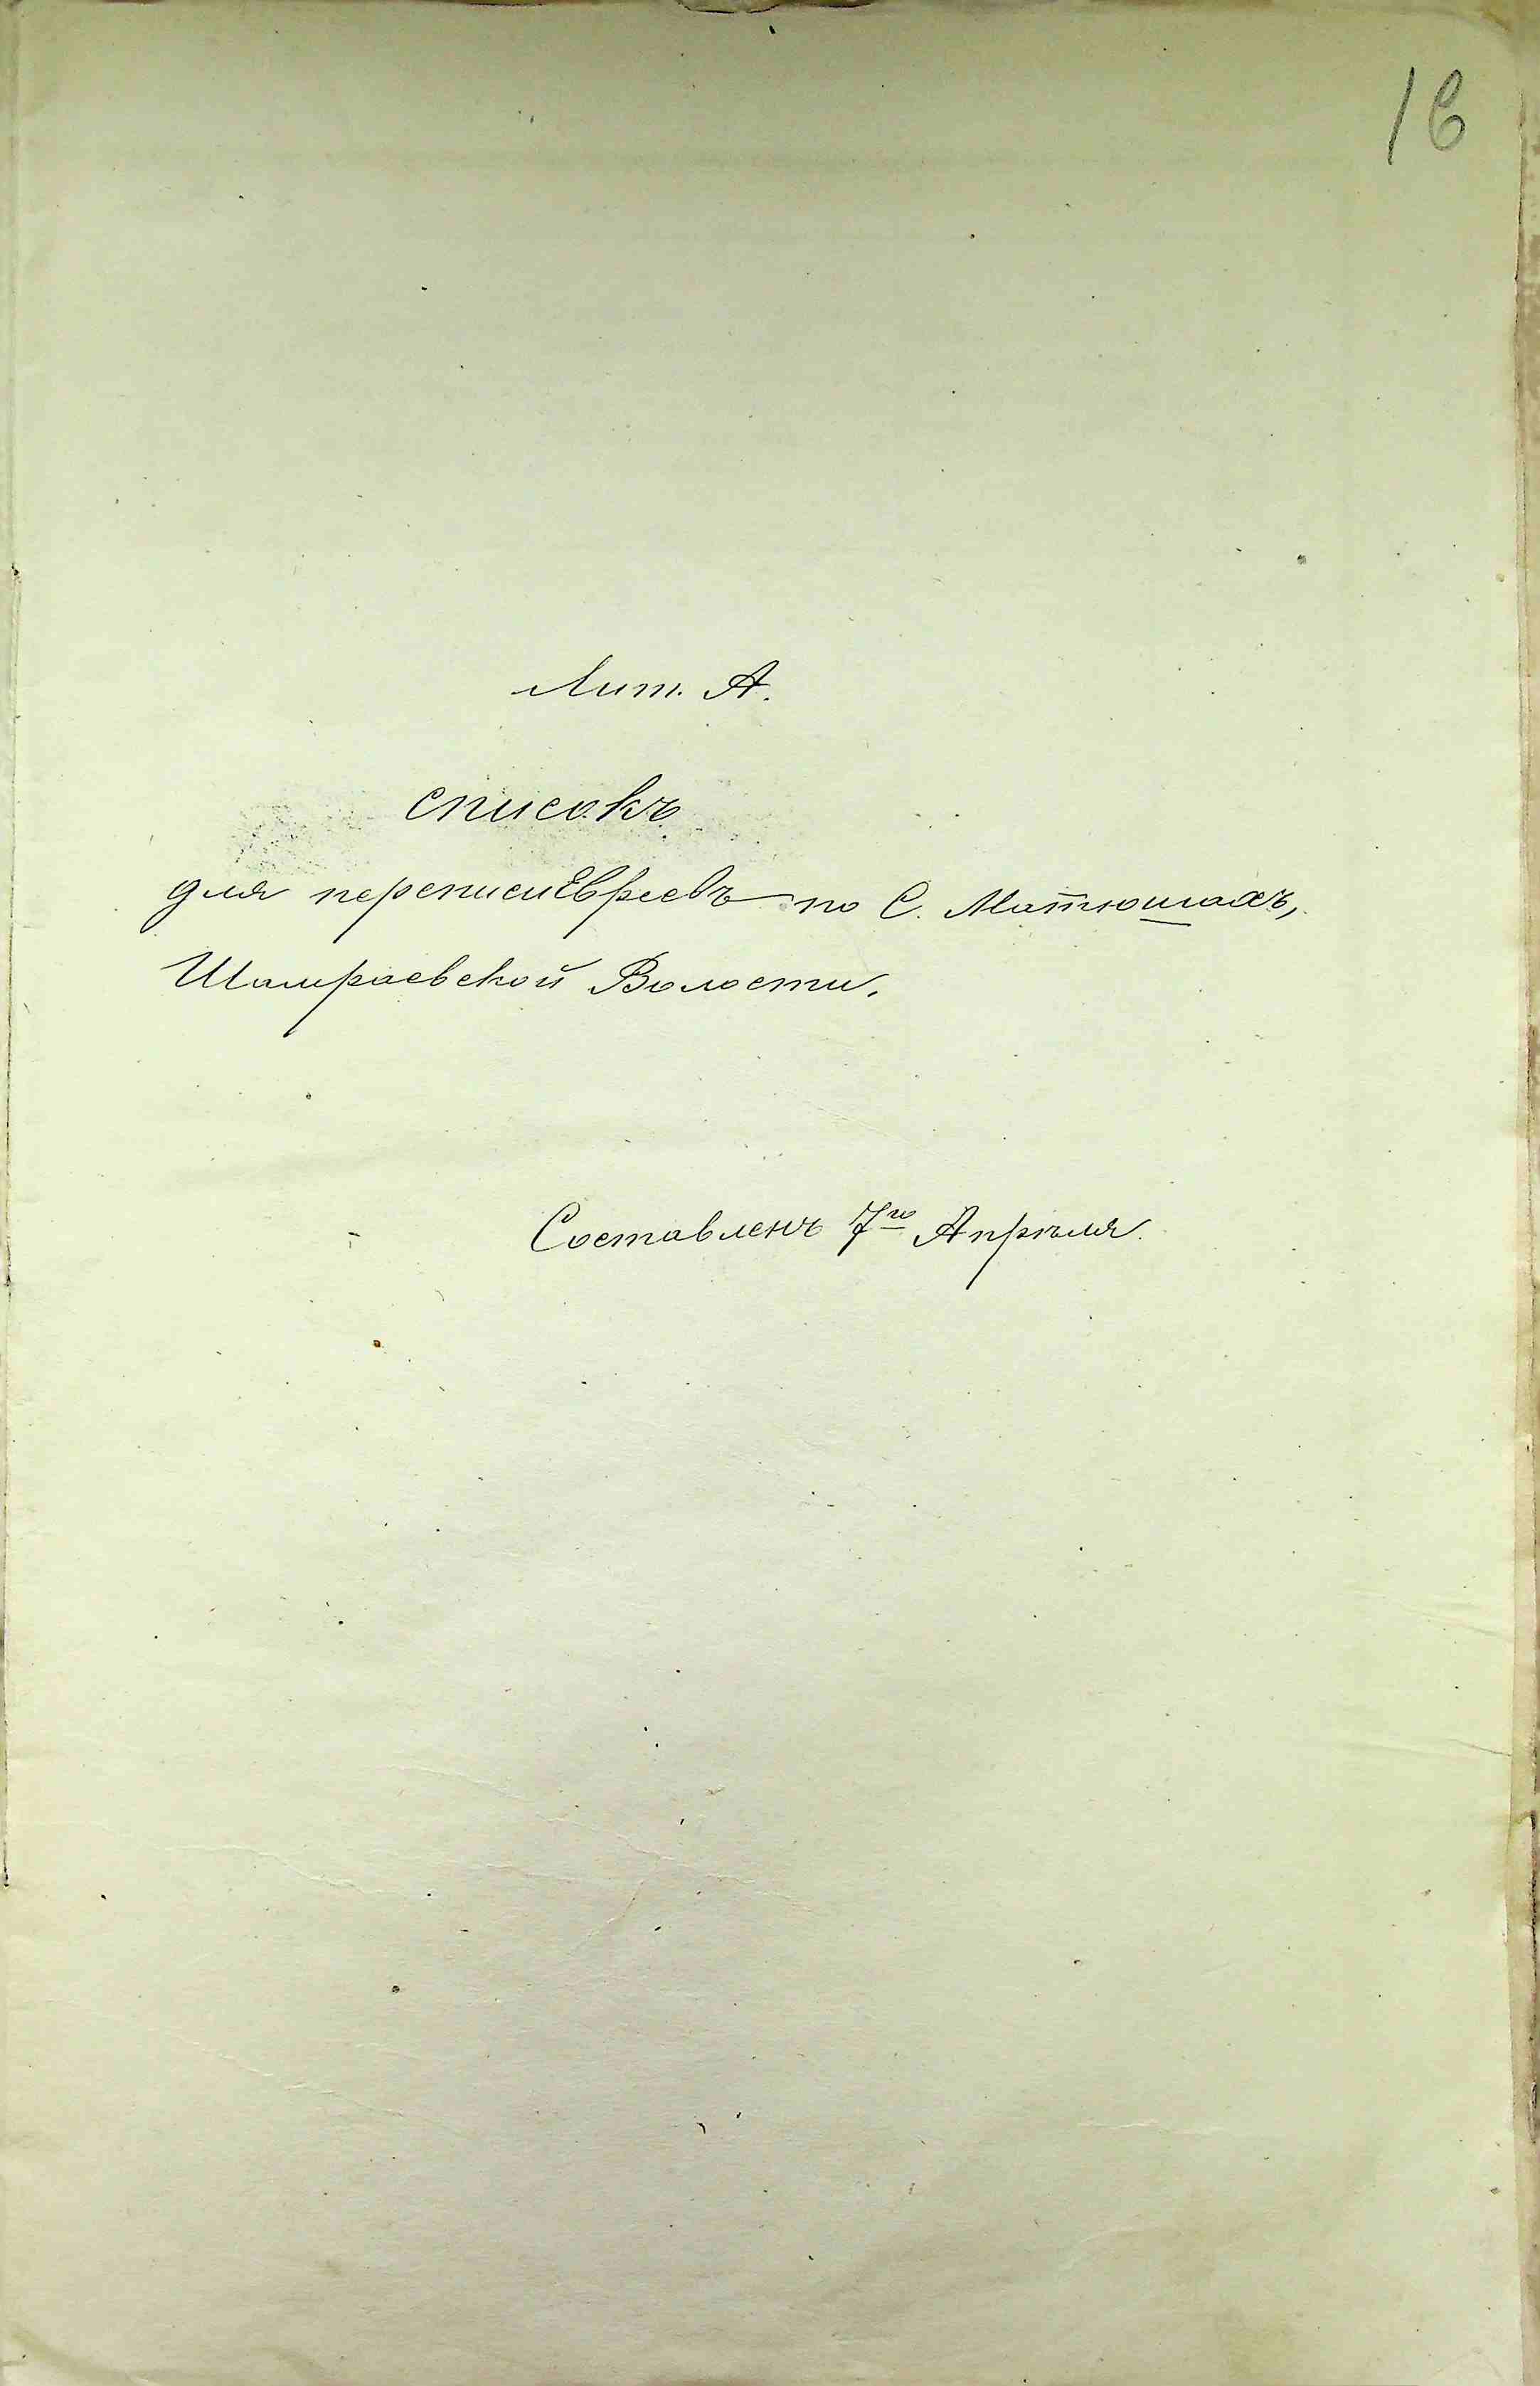 16
Лит. А.
списокъ
для переписи Евреевъ по С. Матюшахъ,
Шамраевской Волости.
Составленъ 7го Апрѣля.